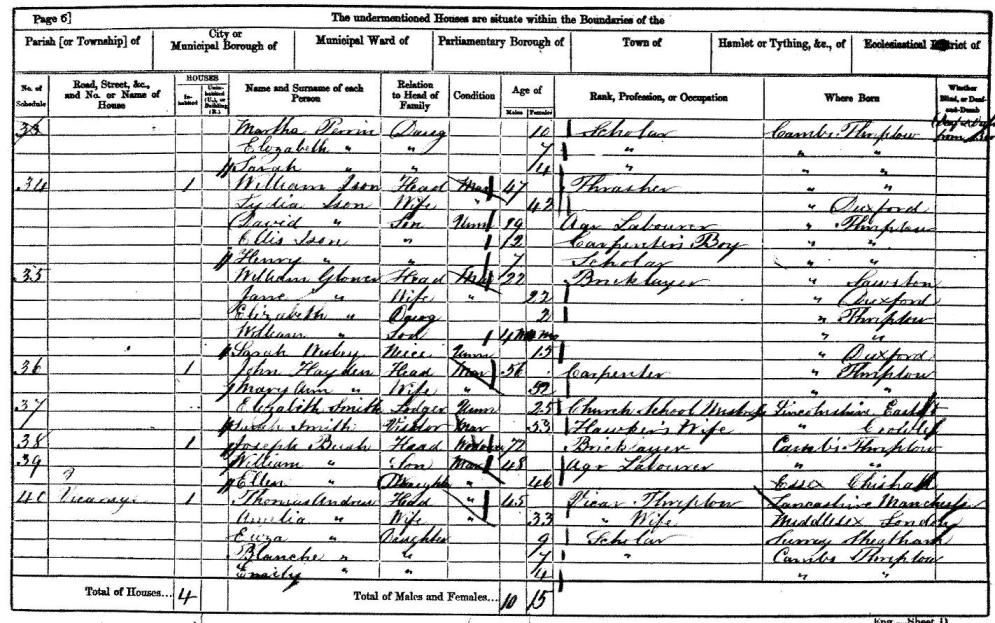 Page 6] The undermentioned Houses are situate within the Boundaries of the
Parish [or Township] of City or Municipal Borough of Municipal Ward of Parliamentary Borough of Town of Hamlet or Tything, &c., of Ecclesiastical District of
No. of Schedule Road, Street, &c., and No. or Name of House HOUSES Inhabited Uninhabited (U.), or Building (B.) Name and Surname of each Person Relation to Head of Family Condition Age of Males Females Rank, Profession, or Occupation Where Born Whether Blind, or Deaf-and-Dumb
33 Martha Perrin Daug 10 Scholar Cambs Thriplow
Elizabeth " " 7 " " "
Sarah " " 4 " "
34 1 William Ison Head Mar 47 Thrasher " "
Lydia Ison Wife " 42 " Duxford
David " Son Unm 19 Agr Labourer " Thriplow
Ellis Ison " 12 Carpenter's Boy " "
Henry " " 7 Scholar " "
35 William Glover Head Mar 22 Bricklayer " Sawston
Jane " Wife " 22 " Duxford
Elizabeth " Daug 2 " Thriplow
William " Son 4 " "
Sarah Niece Unm 15 " Duxford
36 1 John Hayden Head Mar 56 Carpenter " Thriplow
Mary Ann " Wife " 52 " "
37 Elizabeth Smith Lodger Unm 25 Church School Lincolnshire
Smith Visitor Mar 53 Hawker's Wife "
38 1 Joseph Bush Head 72 Bricklayer Cambs Thriplow
39 William " Son Mar 48 Agr Labourer " "
Ellen " Daughter " 46 Essex Chishall
40 Vicarage 1 Thomas Andrew Head " 45 Vicar Thriplow Lancashire Manchester
Amelia " Wife " 33 " Wife Middlesex London
Eliza " Daughter 9 Scholar Surrey
Blanche " " 7 " Cambs Thriplow
Emily " " 4 " "
Total of Houses... 4 Total of Males and Females... 10 15
Eng.—Sheet D